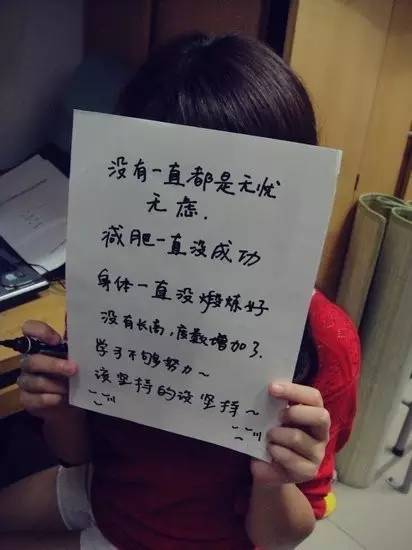 没有一直都是无忧
无虑.
减肥一直没成功
身体一直没煅炼好
没有长高,度数增加了.
学习不够努力~
该坚持的该坚持~